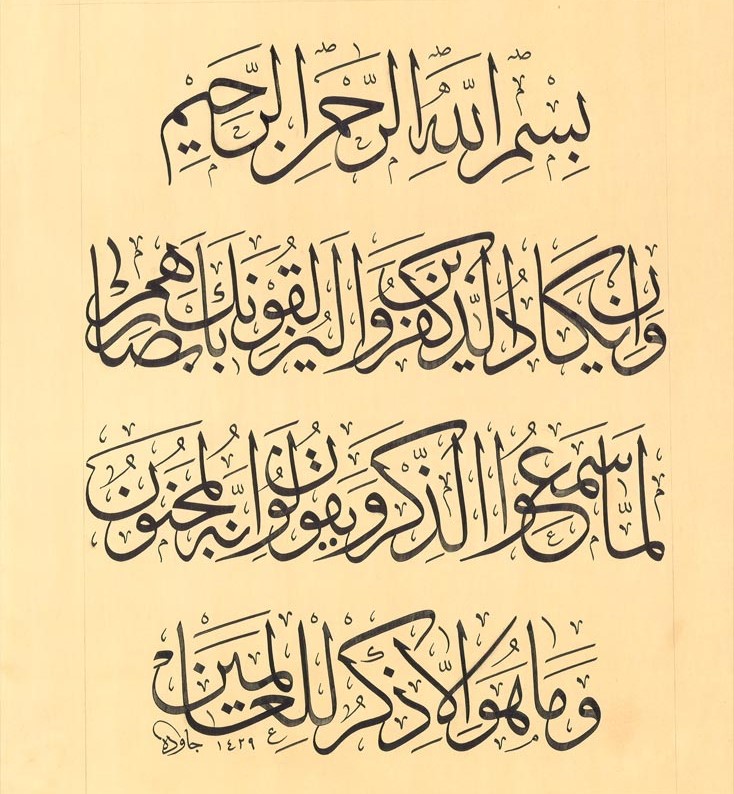 بِسْمِ اللَّهِ الرَّحْمَنِ الرَّحِيمِ
وَإِنْ يَكَادُ الَّذِينَ كَفَرُوا لَيُزْلِقُونَكَ بِأَبْصَارِهِمْ
لَمَّا سَمِعُوا الذِّكْرَ وَيَقُولُونَ إِنَّهُ لَمَجْنُونٌ
وَمَا هُوَ إِلَّا ذِكْرٌ لِلْعَالَمِينَ
١٤٢٩